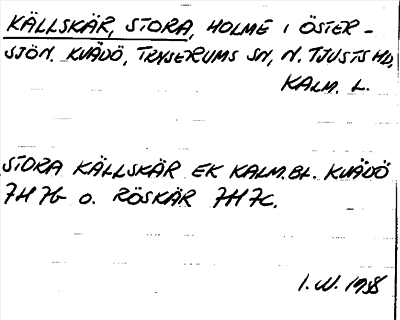 KÄLLSKÄR, STORA, HOLME I ÖSTER-
SJÖN. KVÄDÖ, TRYSERUMS SN, N. TJUSTS HD,
KALM. L.
STORA KÄLLSKÄR EK KALM.BL. KVÄDÖ
7H 7b O. RÖSKÄR 7H 7C.
I. W. 1988